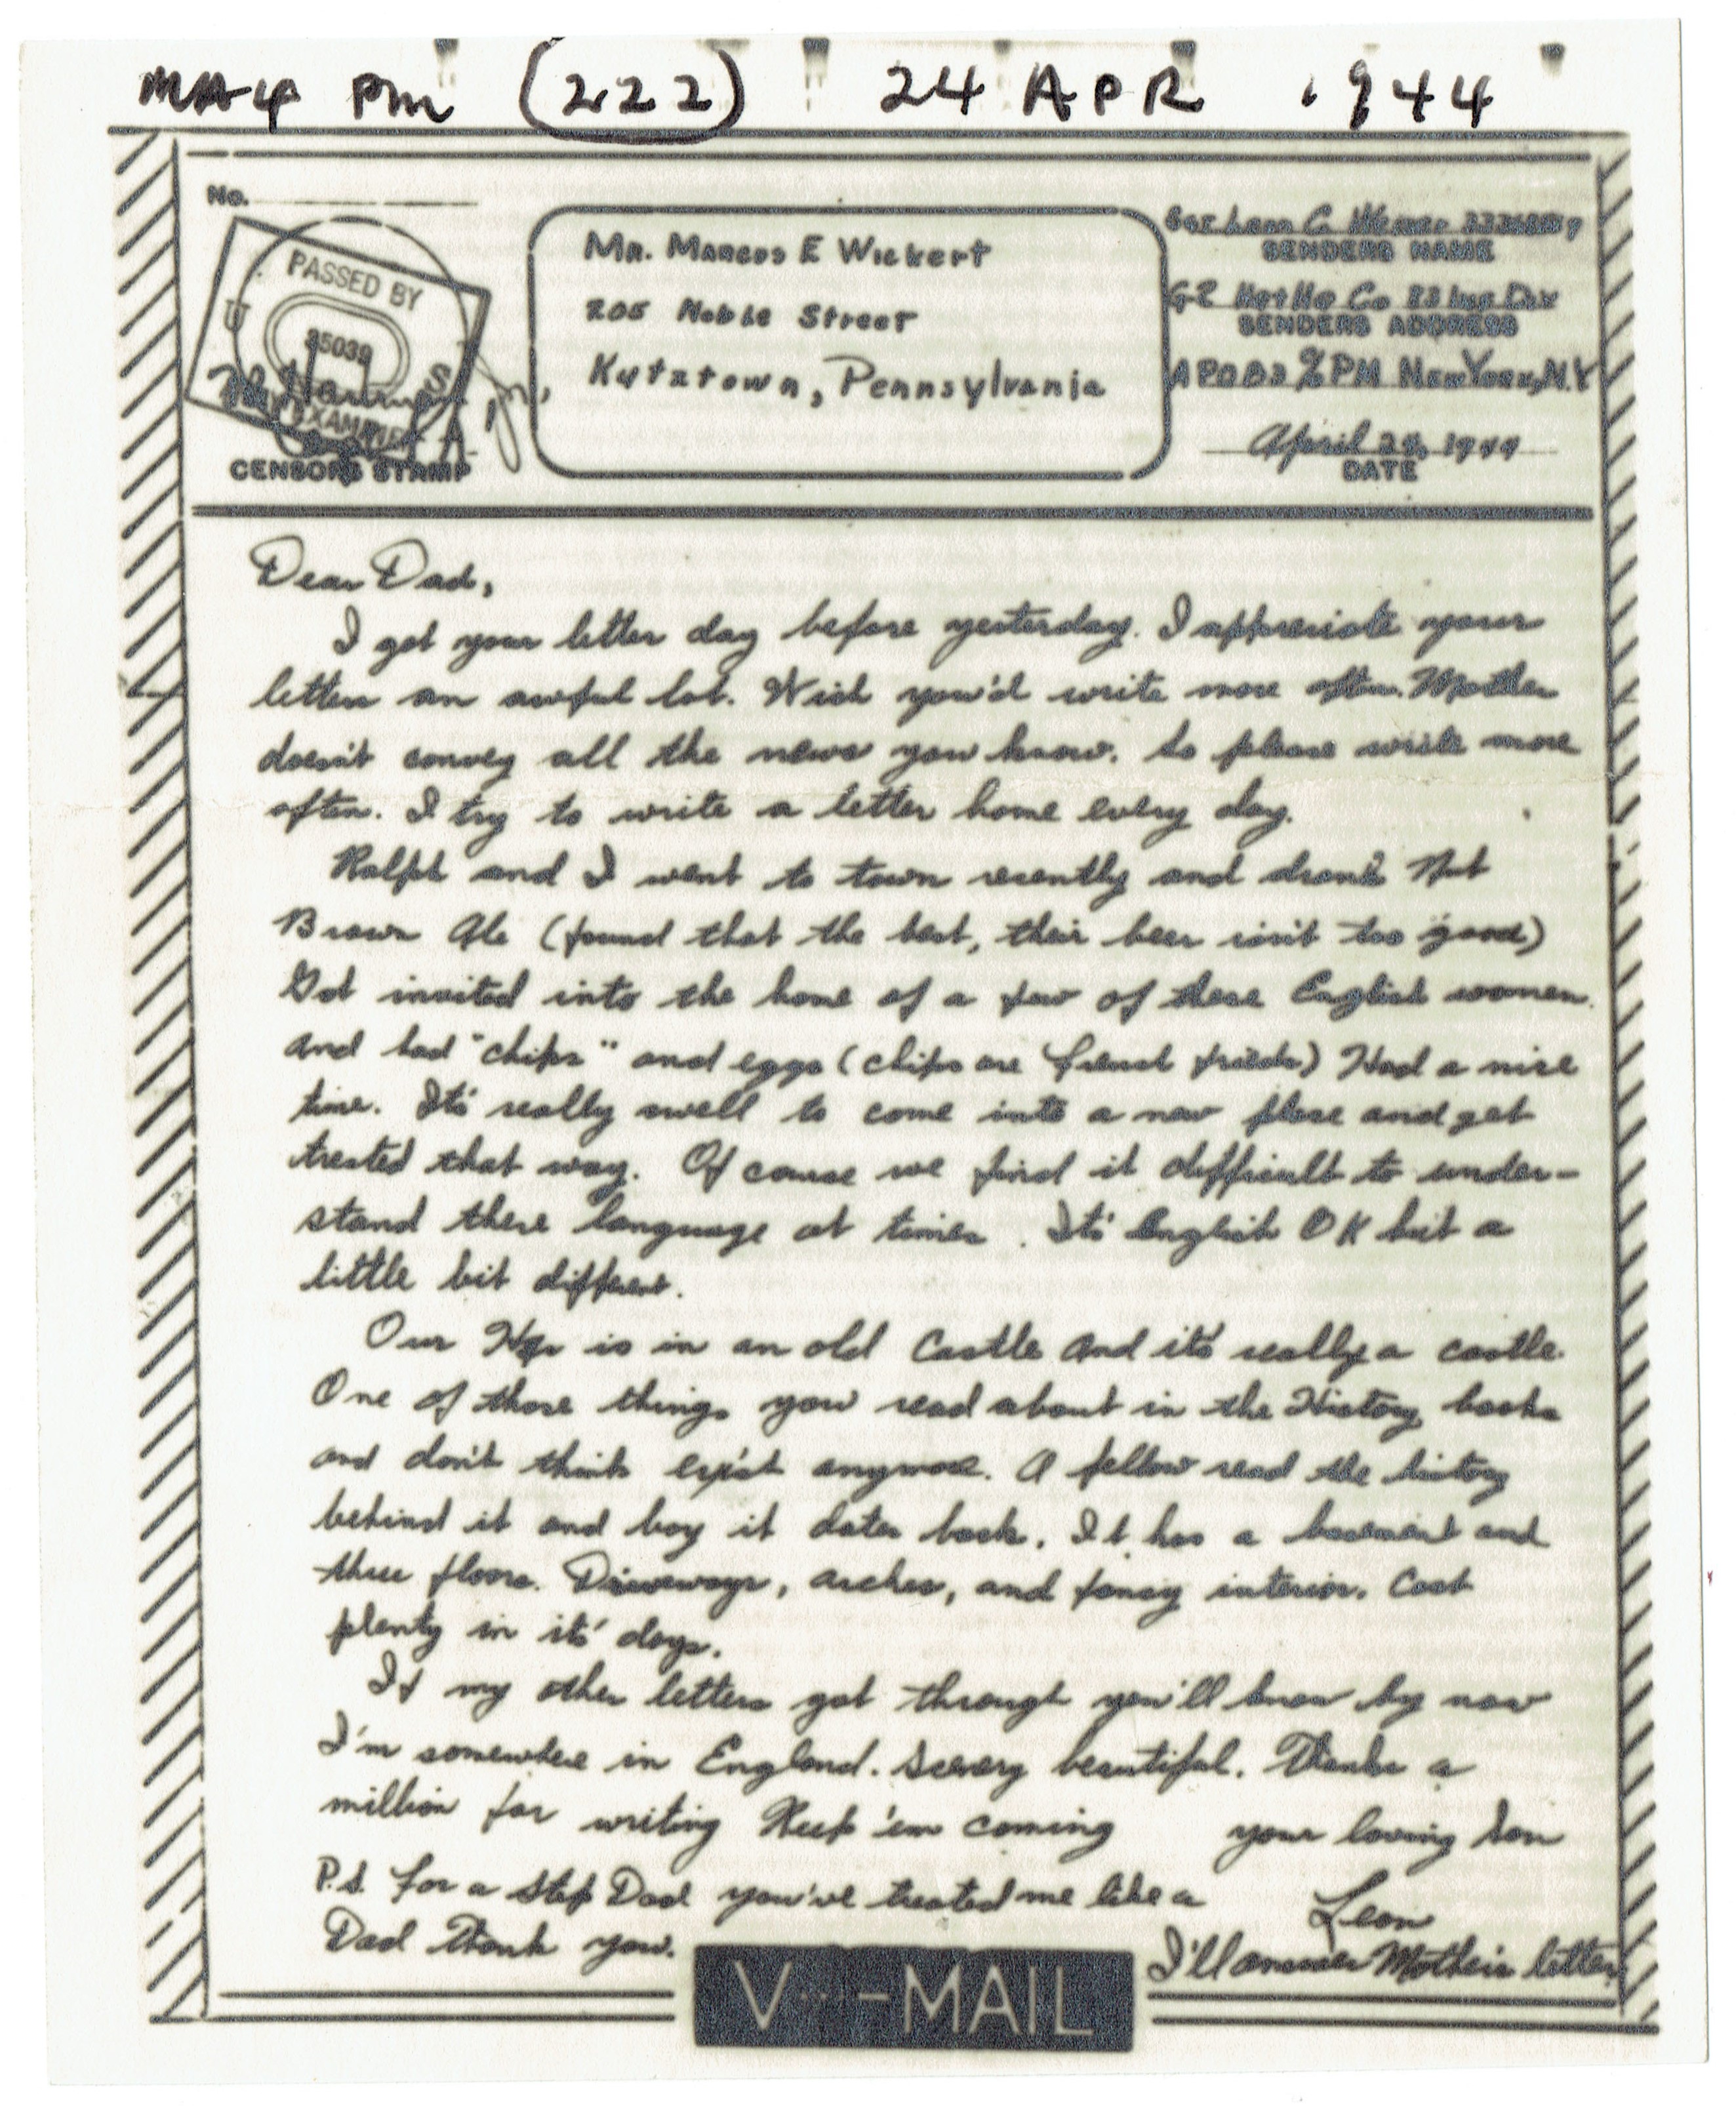 MA4 PM (222) 24 APR 1944
No.
PASSED BY
U S
35039
ARMY EXAMINER
CENSORS STAMP
Mr. Marcus E Wickert
205 Noble Street
Kutztown, Pennsylvania
Sgt Leon C
SENDERS NAME
G2 Hq+Hq Co 83 Inf Div
SENDERS ADDRESS
APO 83 % PM New York, N.Y
April 24, 1944
DATE
Dear Dad,
I got your letter day before yesterday. I appreciate your
letters an awful lot. Wish you'd write more often. Mother
doesn't convey all the news you know. So please write more
often. I try to write a letter home every day.
Ralph and I went to town recently and drank Nut
Brown Ale (found that the best, their beer isn't too good)
Got invited into the home of a few of these English women
and had "chips" and eggs (chips are french frieds) Had a nice
time. Its' really swell to come into a new place and get
treated that way. Of course we find it difficult to under-
stand there language at times. Its' English OK but a
little bit different.
Our Hqs is in an old Castle and its' really a castle.
One of those things you read about in the History books
and don't think exist anymore. A fellow read the history
behind it and boy it dates back. It has a basement and
three floors. Driveways, arches, and fancy interior. Cost
plenty in its' days.
If my other letters got through you'll know by now
I'm somewhere in England. Scenery beautiful. Thanks a
million for writing Keep 'em coming your loving Son
P.S. For a Step Dad you've treated me like a Leon
Dad Thank you. I'll answer Mother's letter
V···—MAIL